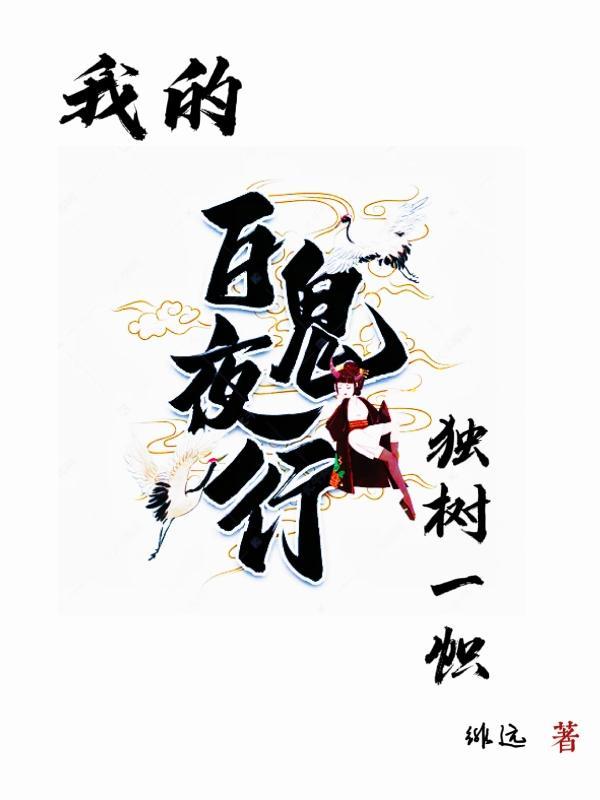 我的
百鬼
夜行
独树一帜
著